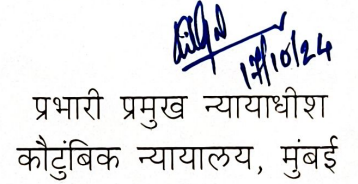 17/10/24
प्रभारी प्रमुख न्यायाधीश
कौटुंबिक न्यायालय, मुंबई